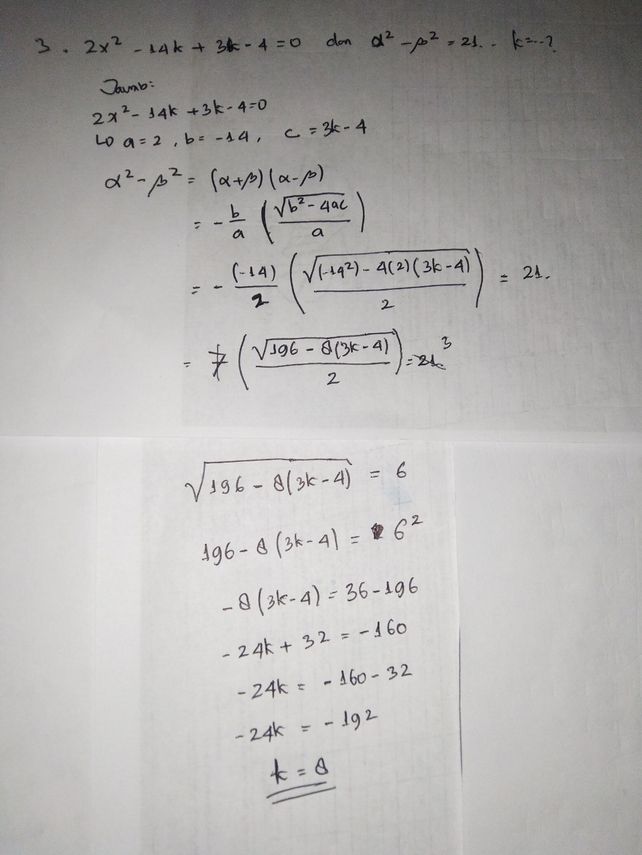 3. 2x² - 14k + 3k - 4 = 0 dan α² - β² = 21. . k = ..?
Jawab:
2x² - 14k + 3k - 4 = 0
↳ a = 2 , b = -14 , c = 3k - 4
α² - β² = (α+β)(α-β)
= - b/a (√(b² - 4ac)/a)
= - (-14)/2 (√((-14²) - 4(2)(3k-4))/2) = 21.
= 7 (√(196 - 8(3k-4))/2) = 21 3
√(196 - 8(3k-4)) = 6
196 - 8(3k-4) = 6²
-8(3k-4) = 36 - 196
-24k + 32 = -160
-24k = -160 - 32
-24k = -192
k = 8